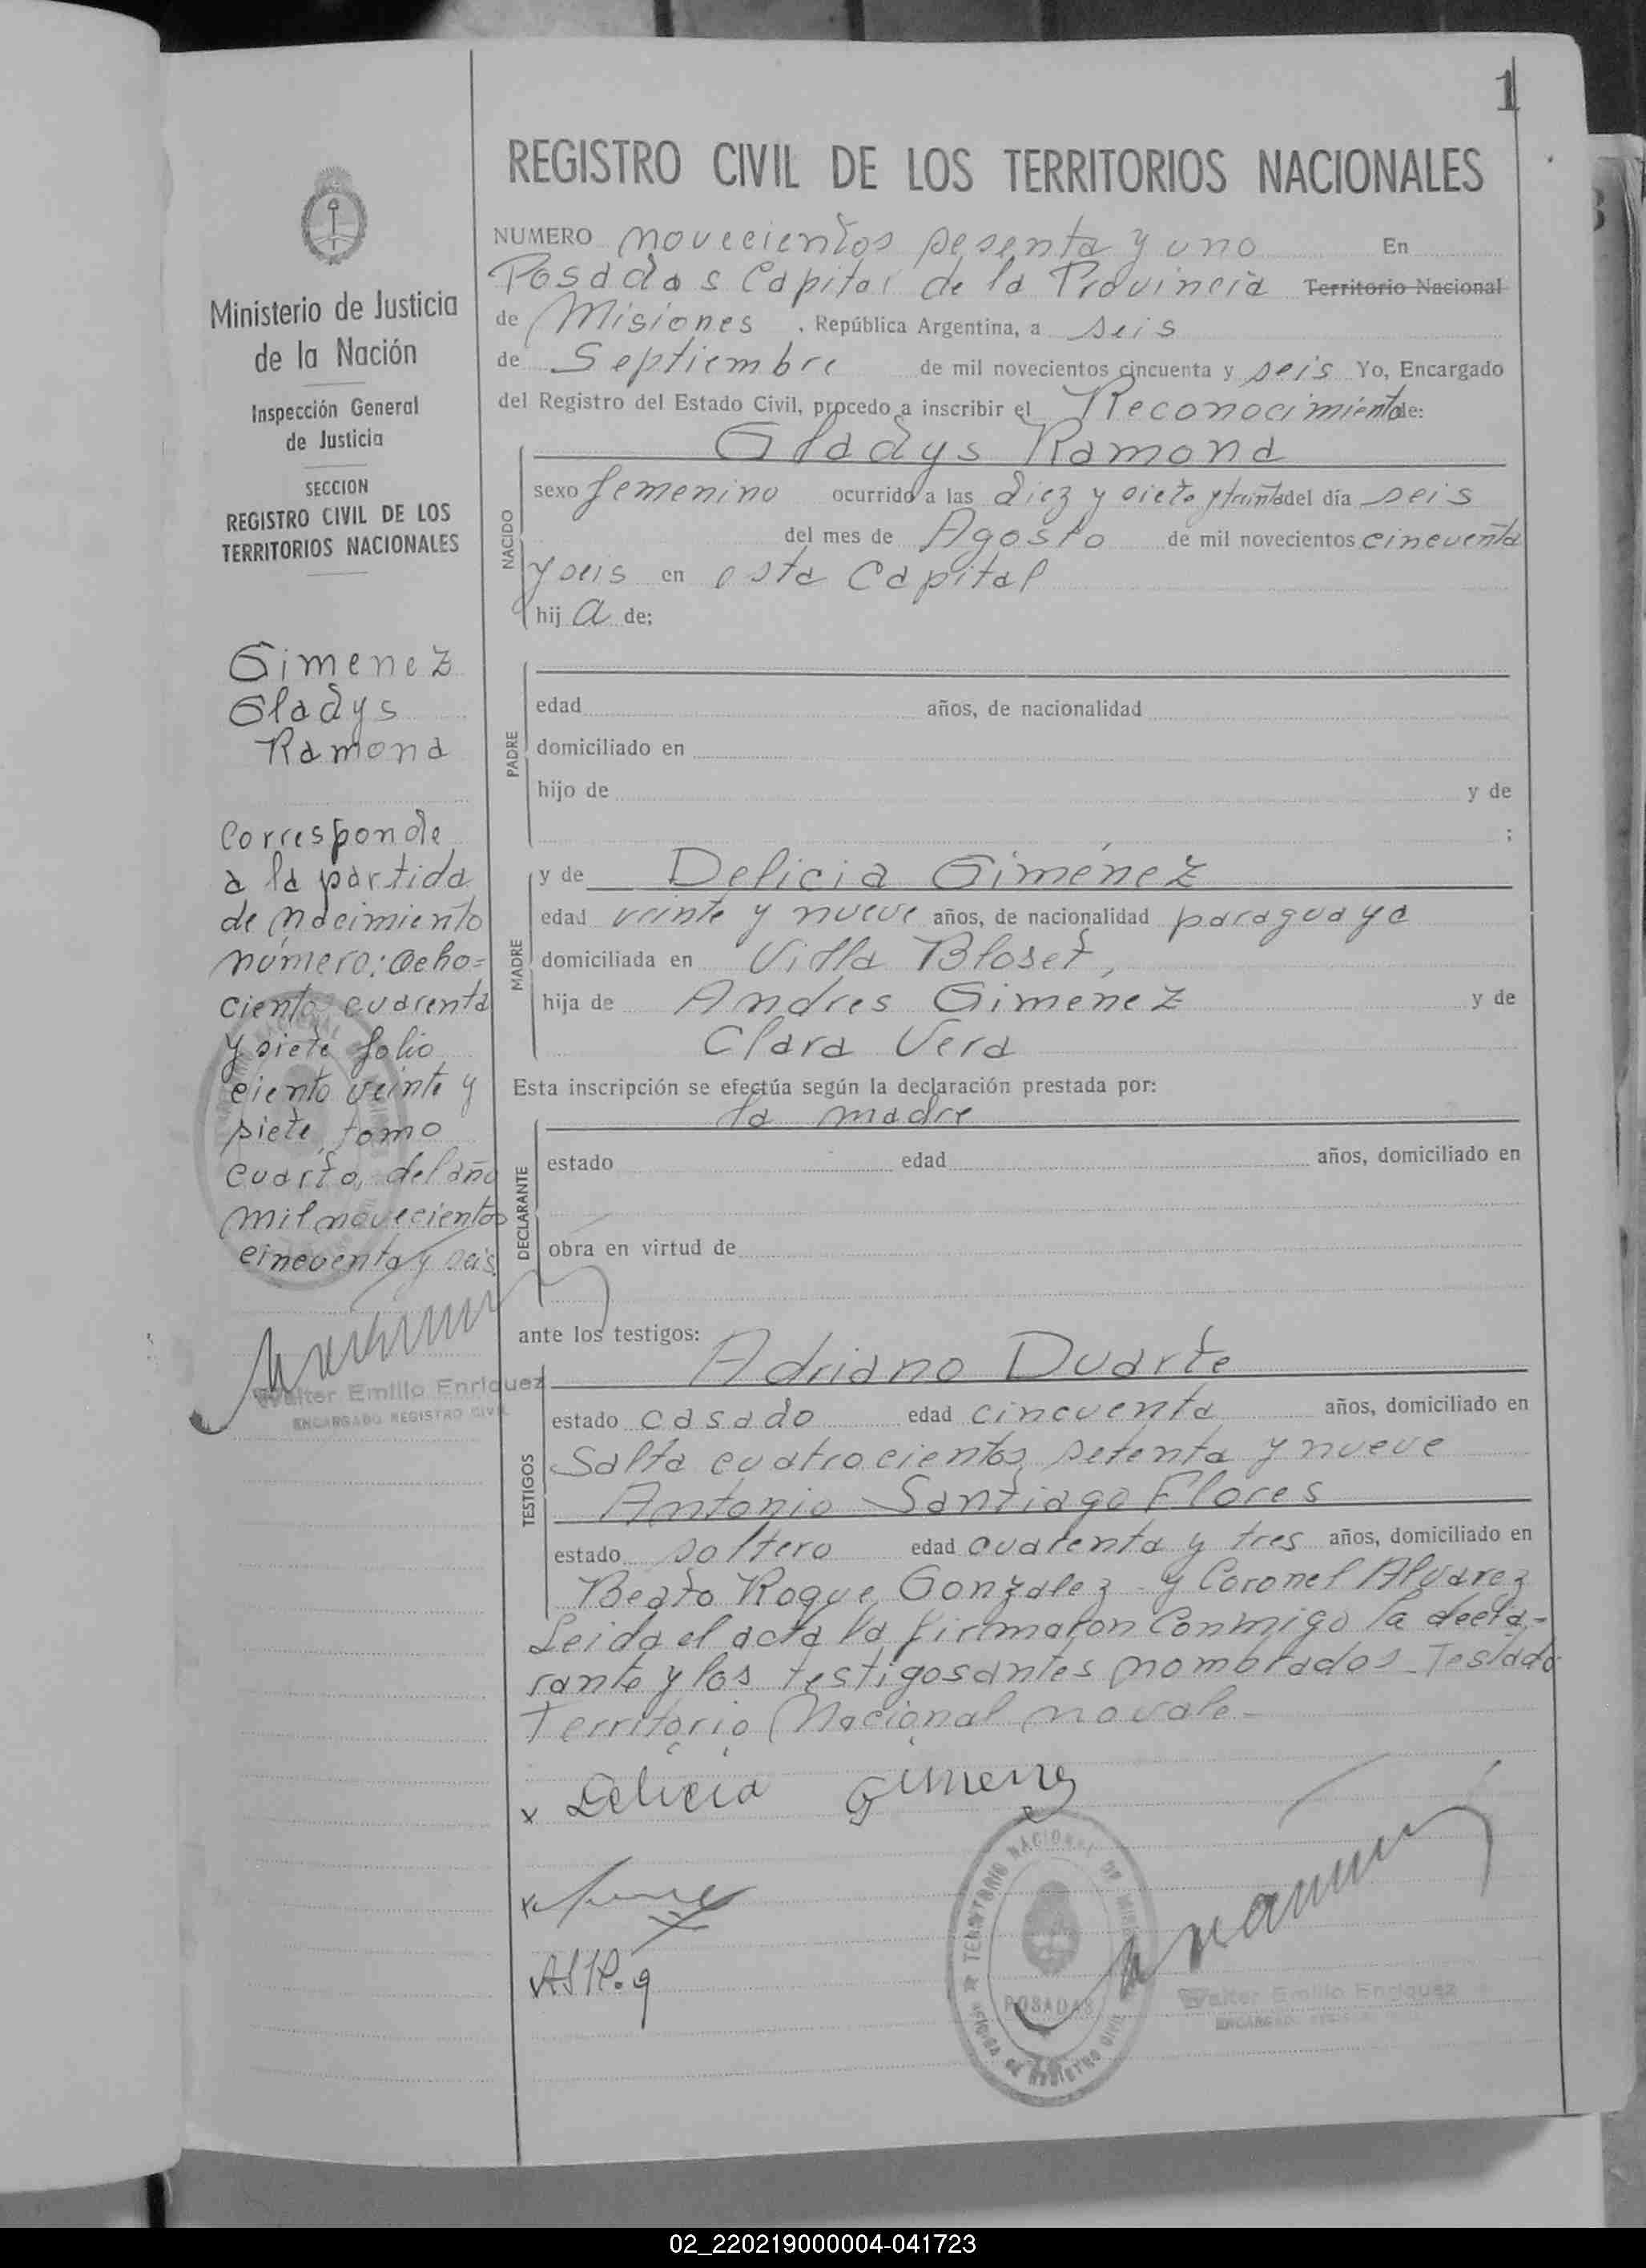 1
Ministerio de Justicia
de la Nación
Inspección General
de Justicia
SECCION
REGISTRO CIVIL DE LOS
TERRITORIOS NACIONALES
Gimenez
Gladys
Ramona
Corresponde
a la partida
de nacimiento
número: ocho=
cientos cuarenta
y siete folio
ciento veinte y
siete, tomo
cuarto, del año
mil novecientos
cincuenta y seis.
Walter Emilio Enriquez
ENCARGADO REGISTRO CIVIL
REGISTRO CIVIL DE LOS TERRITORIOS NACIONALES
NUMERO novecientos sesenta y uno En
Posadas Capital de la Provincia Territorio Nacional
de Misiones, República Argentina, a seis
de Septiembre de mil novecientos cincuenta y seis Yo, Encargado
del Registro del Estado Civil, procedo a inscribir el Reconocimiento de:
Gladys Ramona
NACIDO
sexo femenino ocurrido a las diez y siete y treinta del día seis
del mes de Agosto de mil novecientos cincuenta
y seis en esta Capital
hij a de;
PADRE
edad años, de nacionalidad
domiciliado en
hijo de y de
;
MADRE
y de Delicia Giménez
edad veinte y nueve años, de nacionalidad paraguaya
domiciliada en Villa Bloset,
hija de Andres Gimenez y de
Clara Vera
Esta inscripción se efectúa según la declaración prestada por:
la madre
DECLARANTE
estado edad años, domiciliado en
obra en virtud de
ante los testigos:
Adriano Duarte
TESTIGOS
estado casado edad cincuenta años, domiciliado en
Salta cuatrocientos setenta y nueve
Antonio Santiago Flores
estado soltero edad cuarenta y tres años, domiciliado en
Beato Roque Gonzalez y Coronel Alvarez
Leida el acta la firmaron conmigo la decla-
rante y los testigos antes nombrados - Testado
Territorio Nacional no vale -
x Delicia Gimenez
TERRITORIO NACIONAL DE MISIONES
POSADAS
OFICINA DE REGISTRO CIVIL
Walter Emilio Enriquez
ENCARGADO REGISTRO CIVIL
02_220219000004-041723